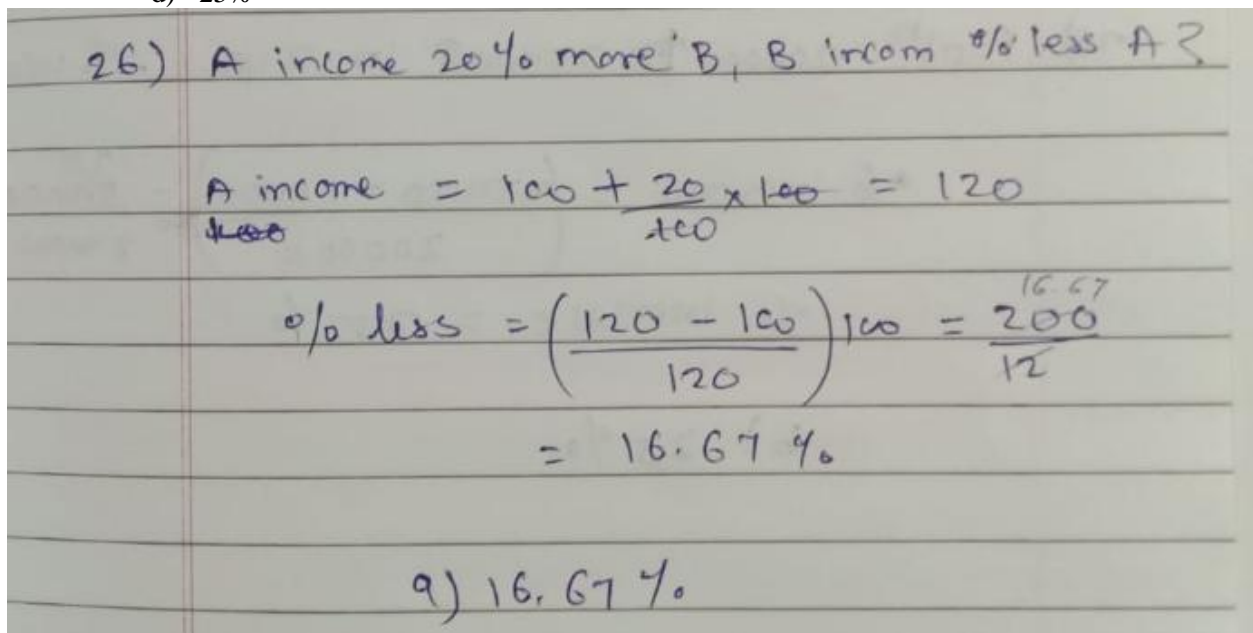 d) 25%
26) A income 20% more B, B incom % less A?
A income = 100 + 20/100 x 100 = 120
% less = (120 - 100 / 120) 100 = 200/12 16.67
= 16.67 %
a) 16.67 %